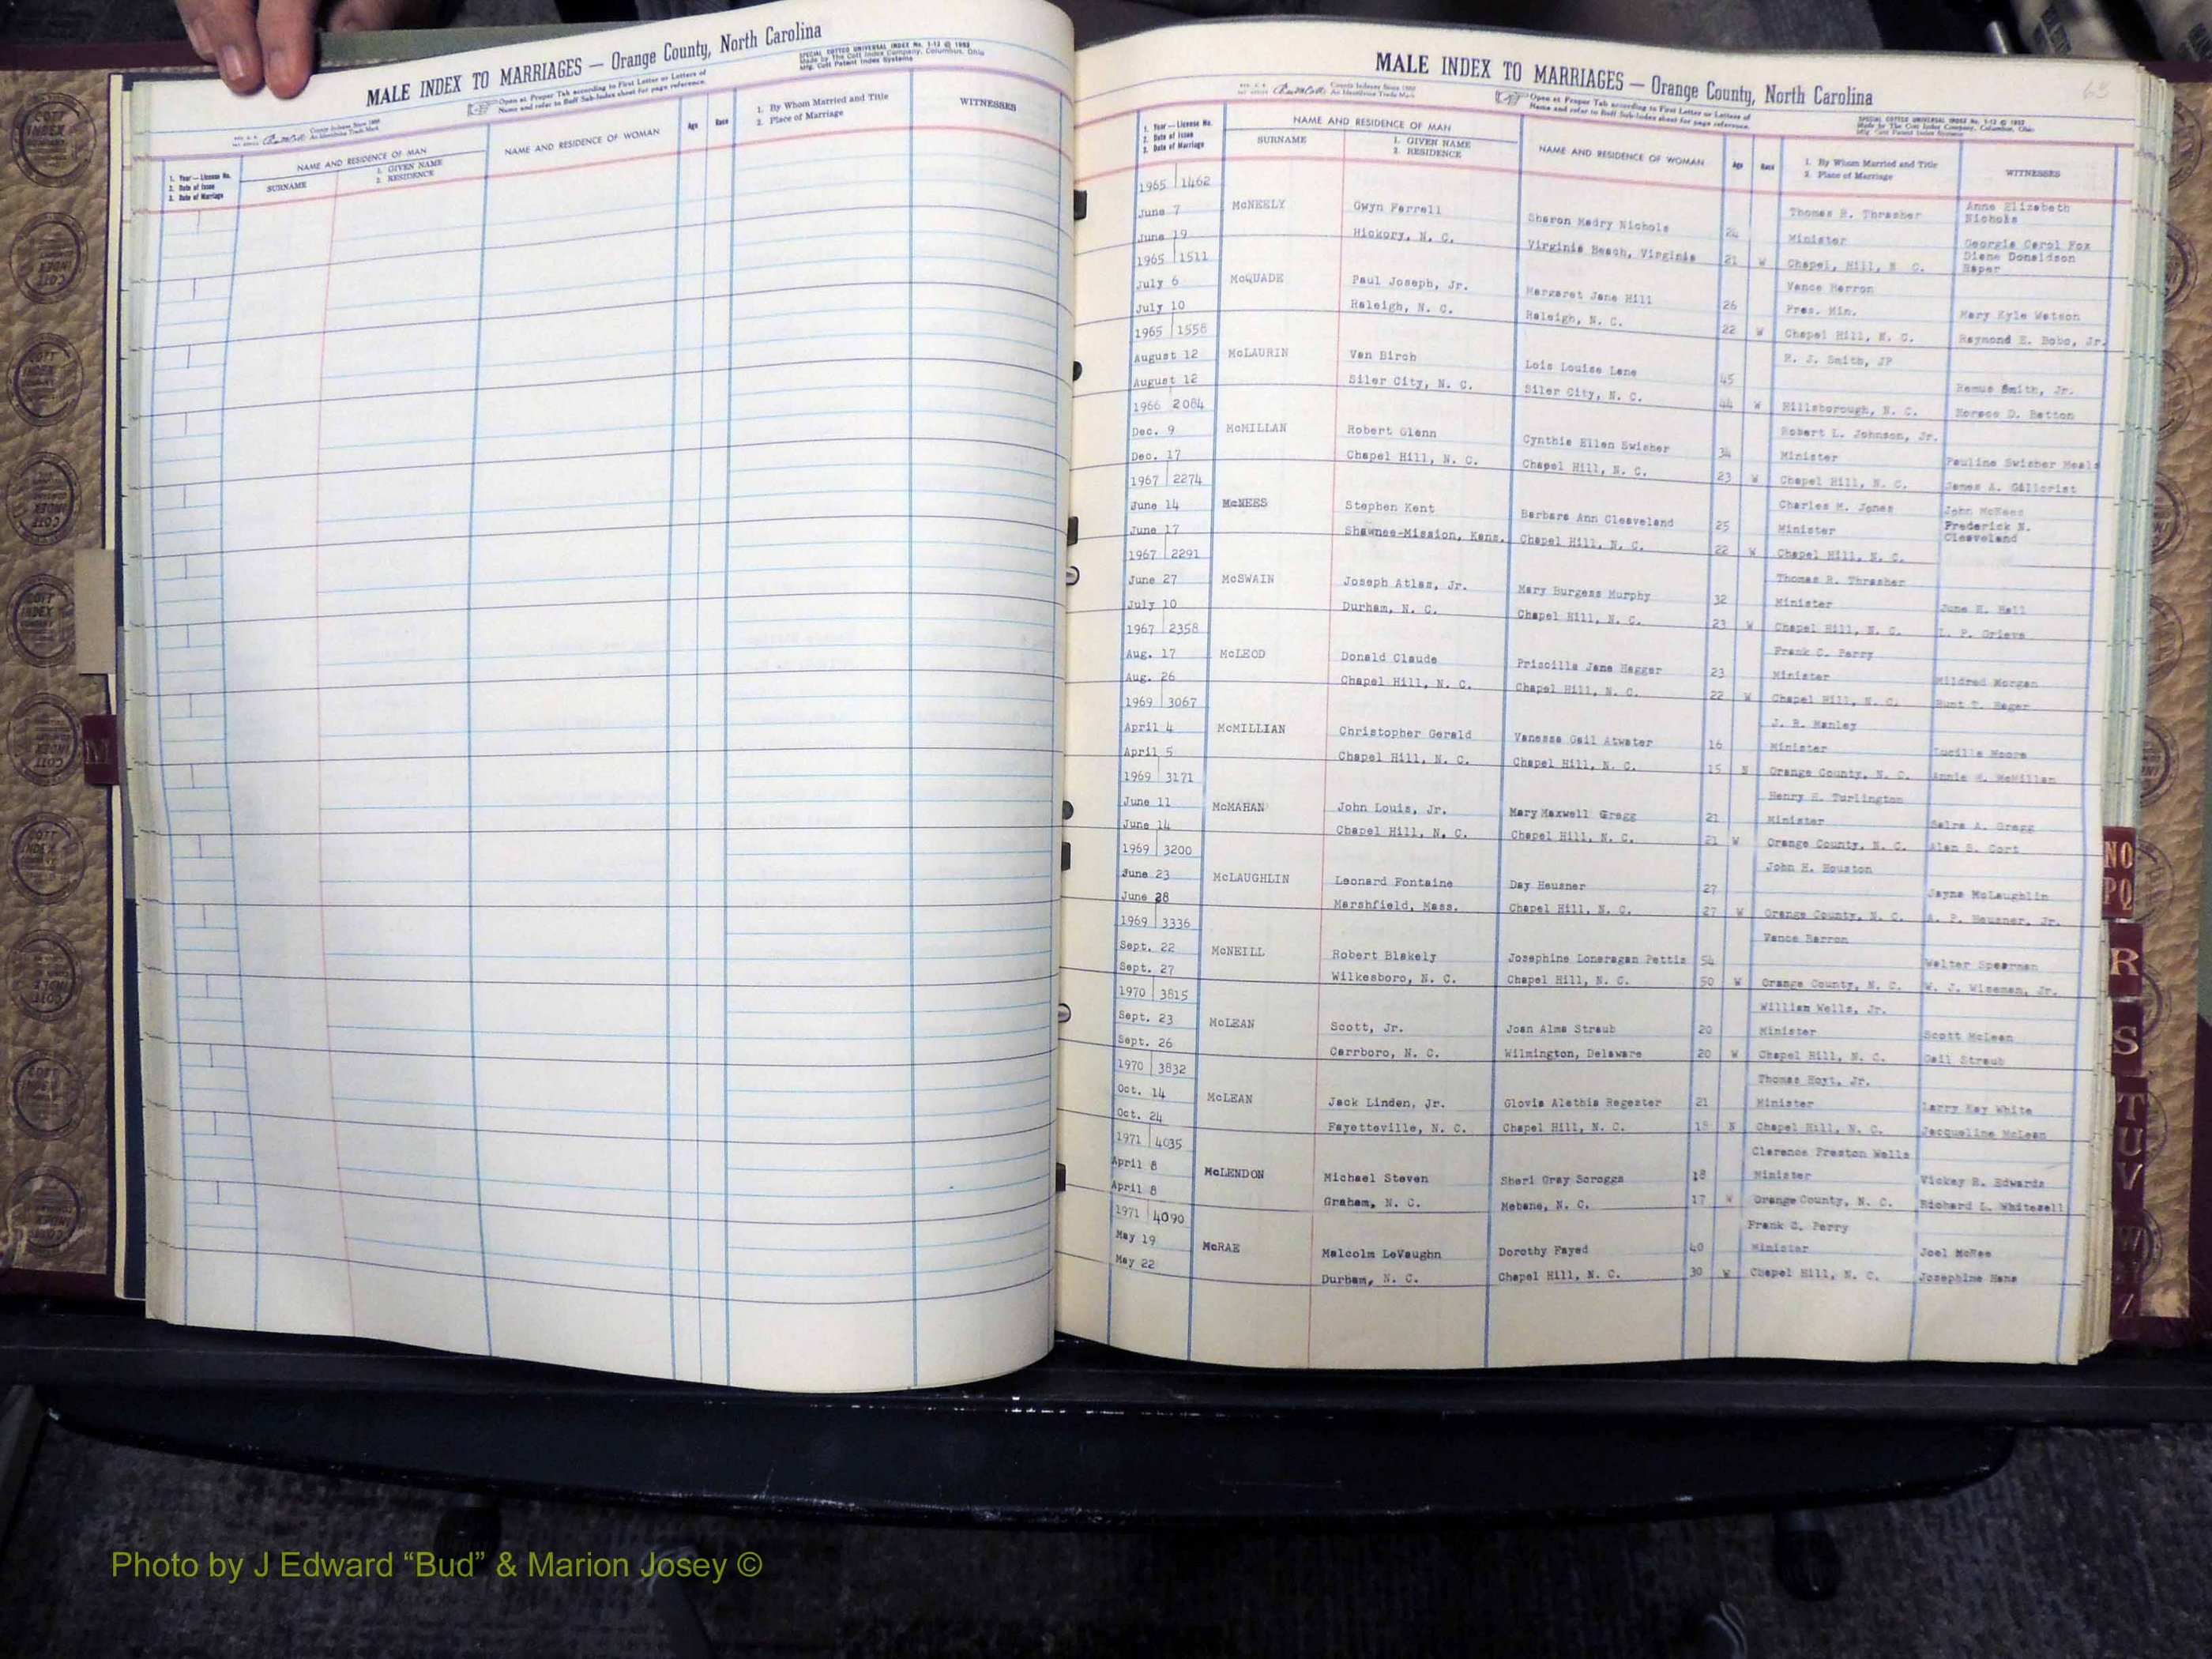 MALE INDEX TO MARRIAGES — Orange County, North Carolina
SPECIAL COTTCO UNIVERSAL INDEX No. 1-12 © 1952
Made by The Cott Index Company, Columbus, Ohio
Mfg. Cott Patent Index Systems
Open at Proper Tab according to First Letter or Letters of
Name and refer to Buff Sub-Index sheet for page reference.
County Indexes Since 1888
An Identifying Trade Mark
1. Year — License No.
2. Date of Issue
3. Date of Marriage
NAME AND RESIDENCE OF MAN
SURNAME
1. GIVEN NAME
2. RESIDENCE
NAME AND RESIDENCE OF WOMAN
Age
Race
1. By Whom Married and Title
2. Place of Marriage
WITNESSES
M
MALE INDEX TO MARRIAGES — Orange County, North Carolina
63
County Indexes Since 1888
An Identifying Trade Mark
Open at Proper Tab according to First Letter or Letters of
Name and refer to Buff Sub-Index sheet for page reference.
SPECIAL COTTCO UNIVERSAL INDEX No. 1-12 © 1952
Made by The Cott Index Company, Columbus, Ohio
Mfg. Cott Patent Index Systems
1. Year — License No.
2. Date of Issue
3. Date of Marriage
NAME AND RESIDENCE OF MAN
SURNAME
1. GIVEN NAME
2. RESIDENCE
NAME AND RESIDENCE OF WOMAN
Age
Race
1. By Whom Married and Title
2. Place of Marriage
WITNESSES
1965 1462
June 7 McNEELY Gwyn Ferrell Sharon Medry Nichols 24 Thomas R. Thrasher Anne Elizabeth Nichols
June 19 Hickory, N. C. Virginia Beach, Virginia 21 W Minister Georgia Carol Fox
Chapel, Hill, N C. Diane Donaldson Raper
1965 1511 Vance Barron
July 6 McQUADE Paul Joseph, Jr. Margaret Jane Hill 26 Pres. Min. Mary Kyle Watson
July 10 Raleigh, N. C. Raleigh, N. C. 22 W Chapel Hill, N. C. Raymond E. Bobo, Jr.
1965 1558 R. J. Smith, JP
August 12 McLAURIN Van Birch Lois Louise Lane 45 Remus Smith, Jr.
August 12 Siler City, N. C. Siler City, N. C. 44 W Hillsborough, N. C. Horace D. Batton
1966 2084 Robert L. Johnson, Jr.
Dec. 9 McMILLAN Robert Glenn Cynthia Ellen Swisher 34 Minister Pauline Swisher Meals
Dec. 17 Chapel Hill, N. C. Chapel Hill, N. C. 23 W Chapel Hill, N. C. James A. Gillcrist
1967 2274 Charles M. Jones John McNees
June 14 McNEES Stephen Kent Barbara Ann Cleaveland 25 Minister Frederick N. Cleaveland
June 17 Shawnee-Mission, Kans. Chapel Hill, N. C. 22 W Chapel Hill, N. C.
1967 2291 Thomas R. Thrasher
June 27 McSWAIN Joseph Atlas, Jr. Mary Burgess Murphy 32 Minister June H. Hall
July 10 Durham, N. C. Chapel Hill, N. C. 23 W Chapel Hill, N. C. L. P. Grieve
1967 2358 Frank C. Perry
Aug. 17 McLEOD Donald Claude Priscilla Jane Hagger 23 Minister Mildred Morgan
Aug. 26 Chapel Hill, N. C. Chapel Hill, N. C. 22 W Chapel Hill, N. C. Hunt T.
1969 3067 J. R. Manley
April 4 McMILLIAN Christopher Gerald Vanessa Gail Atwater 16 Minister Lucille Moore
April 5 Chapel Hill, N. C. Chapel Hill, N. C. 15 N Orange County, N. C. Annie M. McMillan
1969 3171 Henry E. Turlington
June 11 McMAHAN John Louis, Jr. Mary Maxwell Gregg 21 Minister A. Gregg
June 14 Chapel Hill, N. C. Chapel Hill, N. C. 21 W Orange County, N. C. Alan S. Cort
1969 3200 John H. Houston
June 23 McLAUGHLIN Leonard Fontaine Day Heusner 27 Jayne McLaughlin
June 28 Marshfield, Mass. Chapel Hill, N. C. 27 W Orange County, N. C. A. P. Heusner, Jr.
1969 3336 Vance Barron
Sept. 22 McNEILL Robert Blakely Josephine Lonaragan Pettis 54 Walter Spearman
Sept. 27 Wilkesboro, N. C. Chapel Hill, N. C. 50 W Orange County, N. C. W. J. Wiseman, Jr.
1970 3815 William Wells, Jr.
Sept. 23 McLEAN Scott, Jr. Joan Alma Straub 20 Minister Scott McLean
Sept. 26 Carrboro, N. C. Wilmington, Delaware 20 W Chapel Hill, N. C. Gail Straub
1970 3832 Thomas Hoyt, Jr.
Oct. 14 McLEAN Jack Linden, Jr. Glovia Alethia Regester 21 Minister Larry Kay White
Oct. 24 Fayetteville, N. C. Chapel Hill, N. C. 18 N Chapel Hill, N. C. Jacqueline McLean
1971 4035 Clarence Preston Wells
April 8 McLENDON Michael Steven Sheri Gray Scroggs 18 Minister Vickey R. Edwards
April 8 Graham, N. C. Mebane, N. C. 17 W Orange County, N. C. Richard L. Whitesell
1971 4090 Frank C. Perry
May 19 McRAE Malcolm LeVaughn Dorothy Fayed 40 Minister Joel McRae
May 22 Durham, N. C. Chapel Hill, N. C. 30 W Chapel Hill, N. C. Josephine Hans
NO
PQ
R
S
T
U
V
W
Photo by J Edward “Bud” & Marion Josey ©